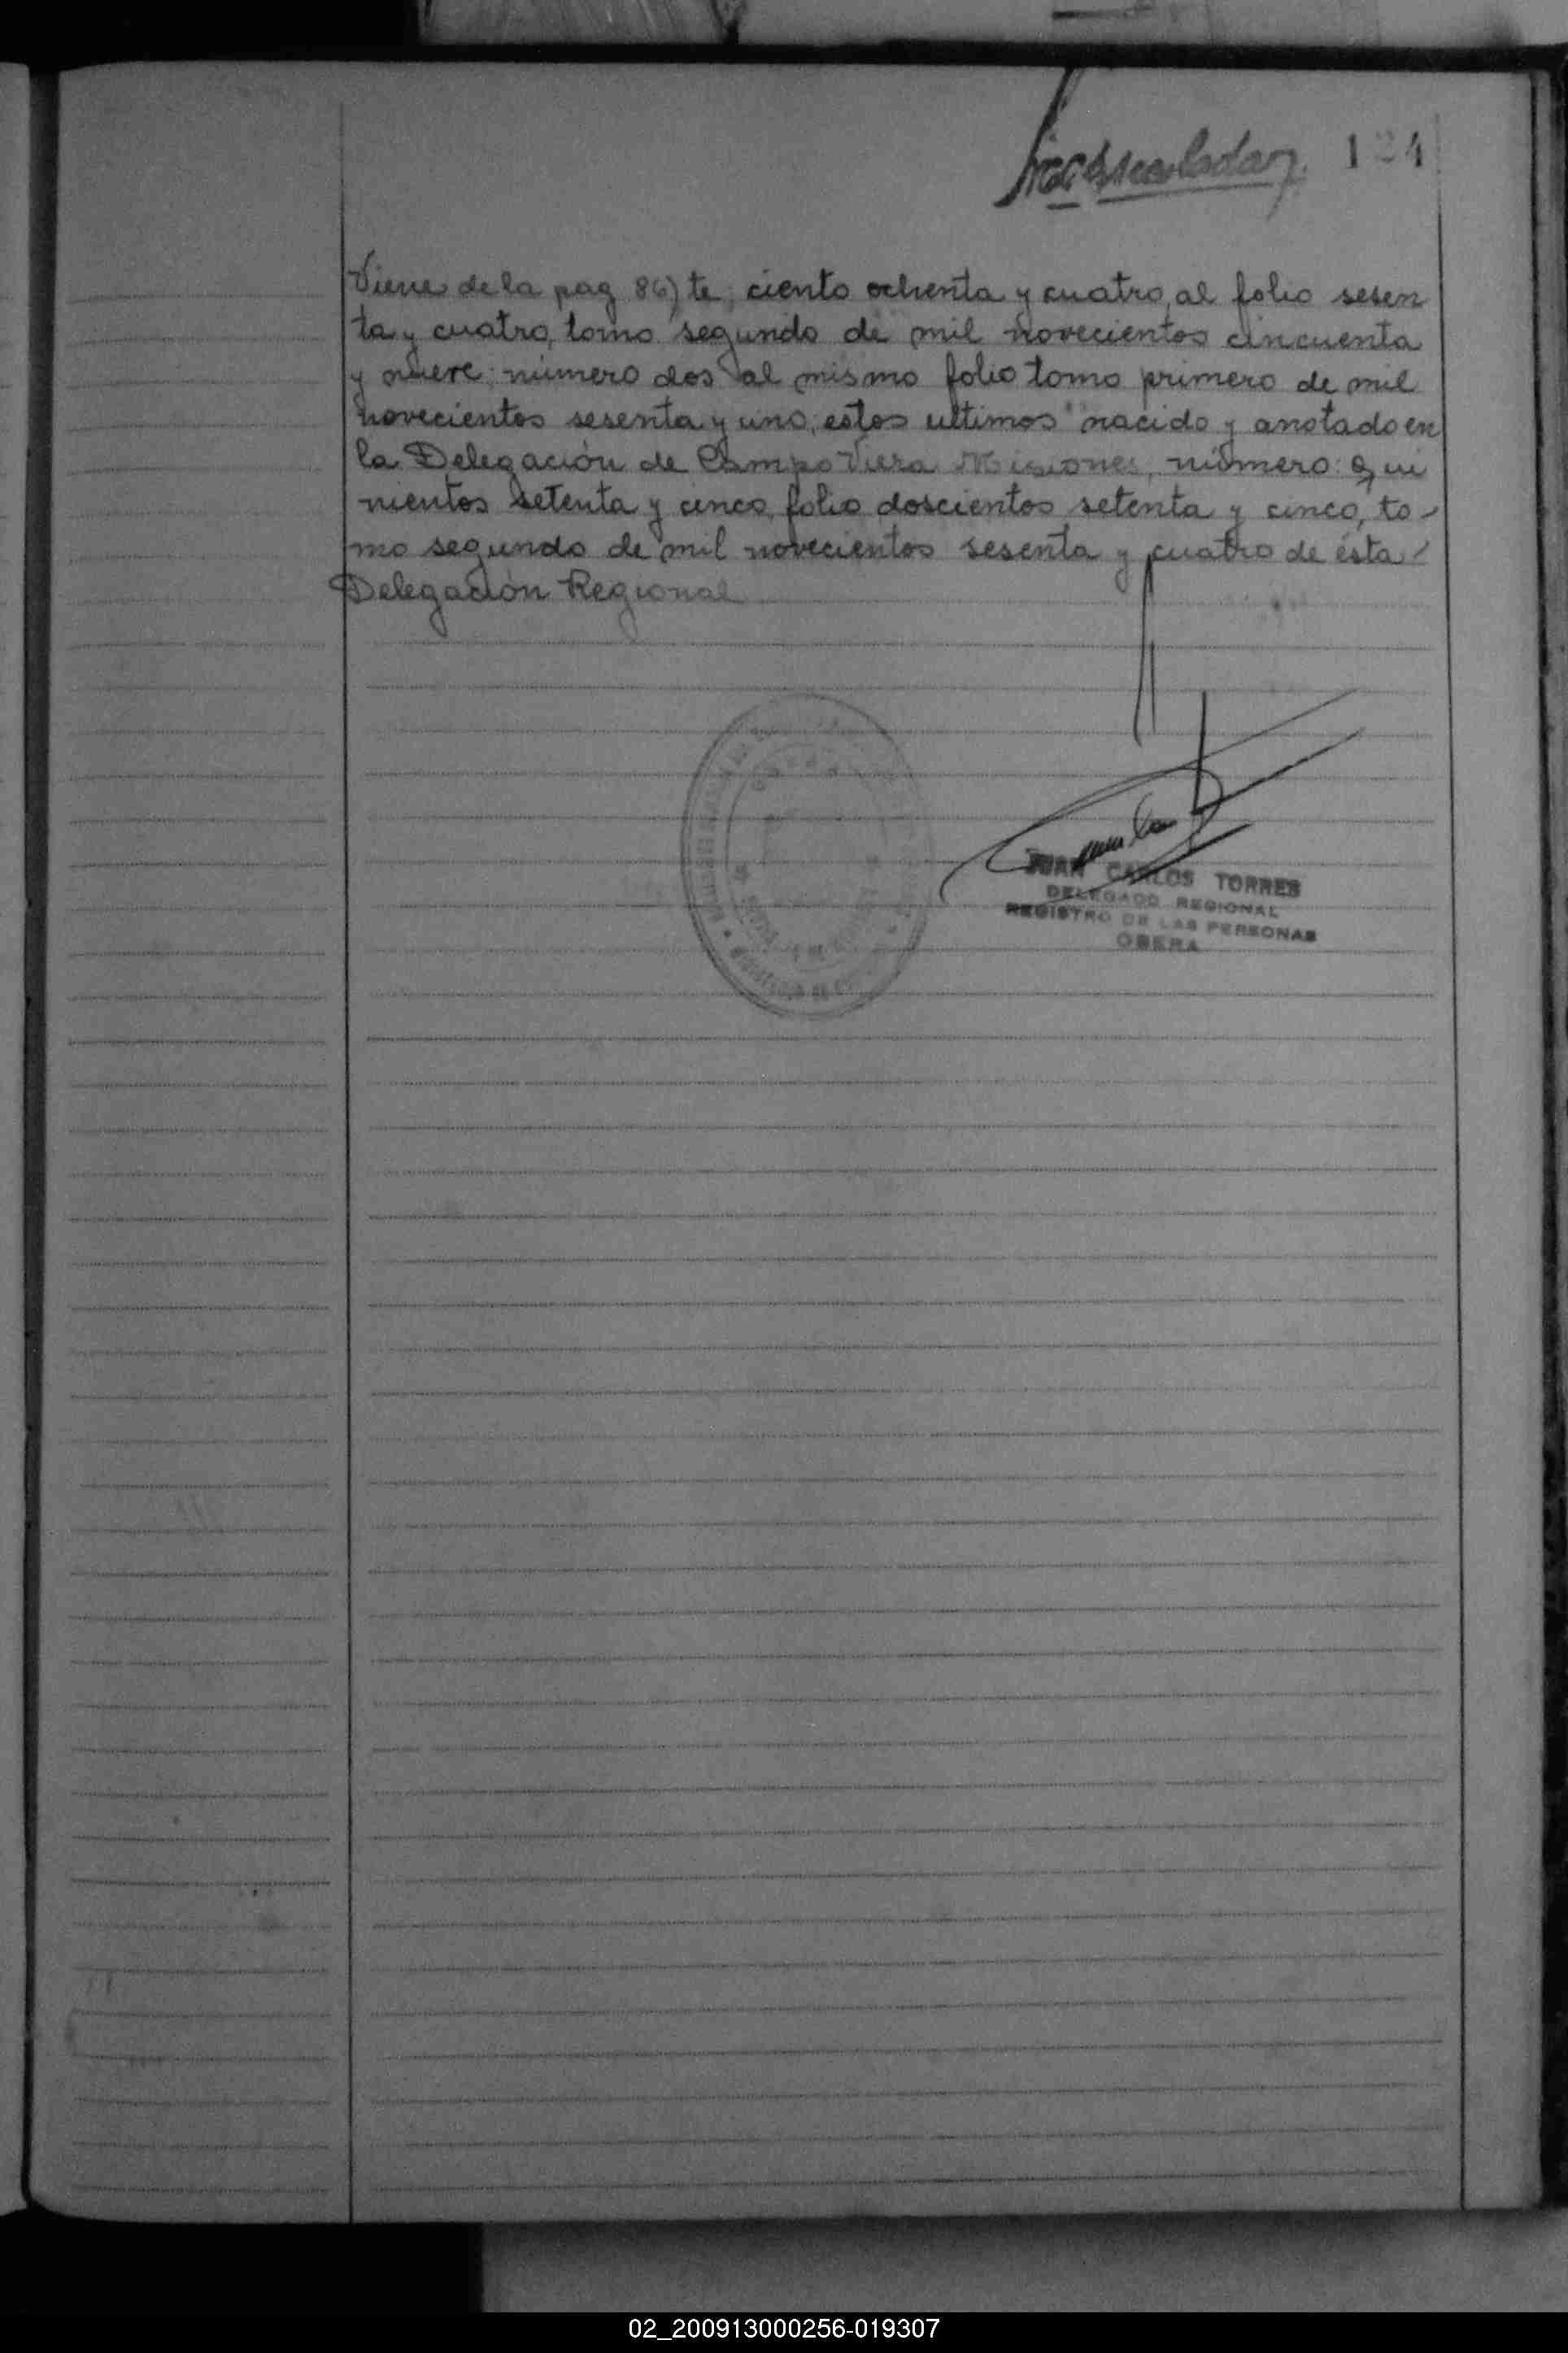 124
Viene de la pag 86) te, ciento ochenta y cuatro, al folio sesen
ta y cuatro, tomo segundo de mil novecientos cincuenta
y nueve; número dos al mismo folio tomo primero de mil
novecientos sesenta y uno; estos ultimos nacido y anotado en
la Delegación de Campo Viera Misiones, número: Qui
nientos setenta y cinco, folio doscientos setenta y cinco, to-
mo segundo de mil novecientos sesenta y cuatro de ésta
Delegación Regional
JUAN CARLOS TORRES
DELEGADO REGIONAL
REGISTRO DE LAS PERSONAS
OBERA
02_200913000256-019307